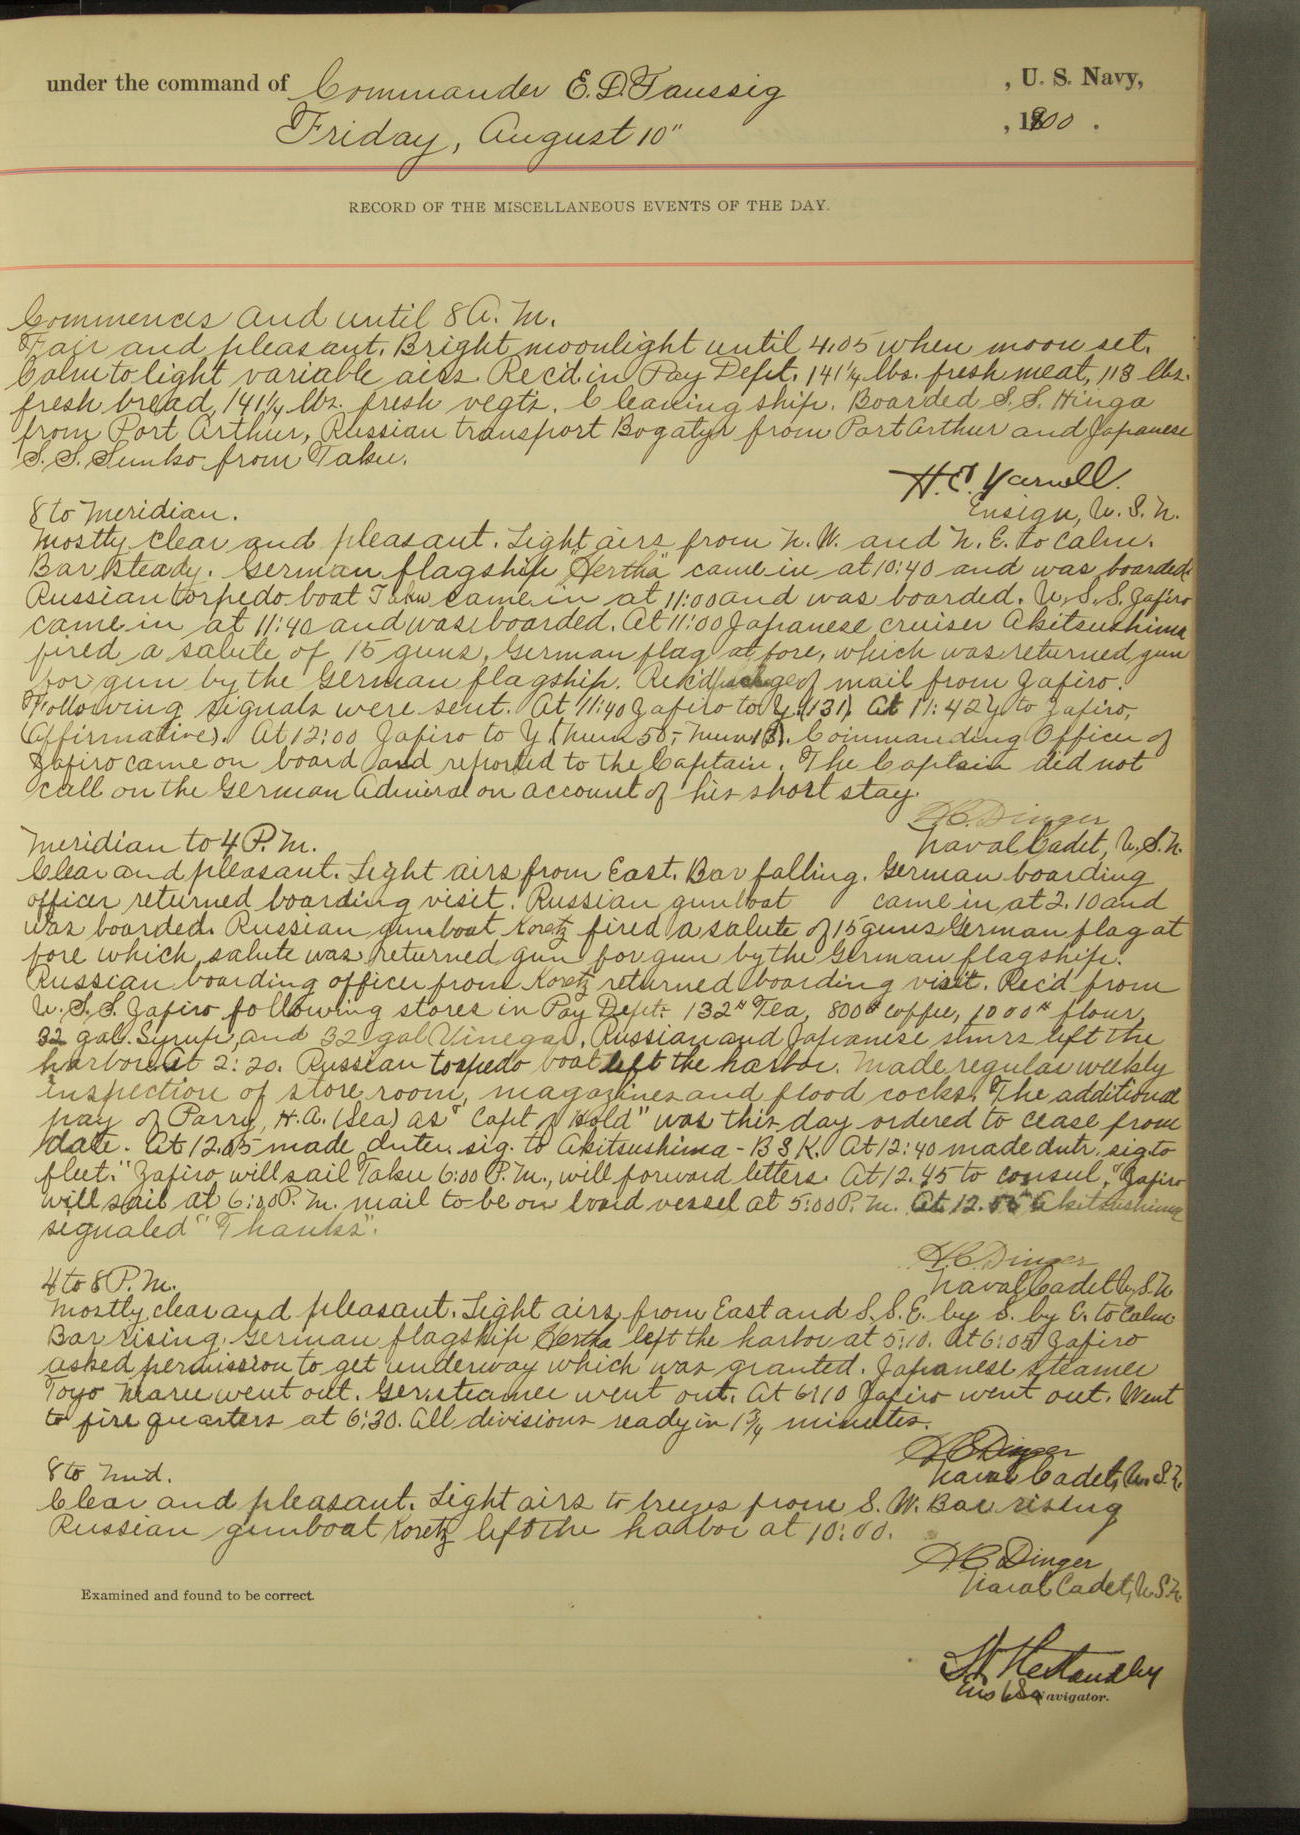 under the command of Commander E. D. Taussig , U. S. Navy,
Friday, August 10" , 1900 .
RECORD OF THE MISCELLANEOUS EVENTS OF THE DAY.
Commences and until 8 A. M.
Fair and pleasant. Bright moonlight until 4.05 when moon set.
Calm to light variable airs. Rec'd in Pay Dept. 141¼ lbs. fresh meat, 113 lbs.
fresh bread, 141¼ lbs. fresh vegts. Cleaning ship. Boarded S.S. Hinga
from Port Arthur, Russian transport Bogatyr from Port Arthur and Japanese
S. S. Sumko from Taku.
H. E. Yarnell.
Ensign, U. S. N.
8 to Meridian.
Mostly clear and pleasant. Light airs from N. W. and N. E. to calm.
Bar steady. German flagship "Hertha" came in at 10:40 and was boarded.
Russian torpedo boat Taku came in at 11:00 and was boarded. U. S. S. Zafiro
came in at 11:40 and was boarded. At 11:00 Japanese cruiser Akitsushima
fired a salute of 15 guns, German flag at fore, which was returned gun
for gun by the German flagship. Rec'd of mail from Zafiro.
Following signals were sent. At 11:40 Zafiro to Y. (131). At 11:42 Y. to Zafiro,
(Affirmative). At 12:00 Zafiro to Y. Commanding Officer of
Zafiro came on board and reported to the Captain. The Captain did not
call on the German Admiral on account of his short stay.
H. C. Dinger
Naval Cadet, U. S. N.
Meridian to 4 P. M.
Clear and pleasant. Light airs from East. Bar falling. German boarding
officer returned boarding visit. Russian gunboat came in at 2.10 and
was boarded. Russian gunboat Koretz fired a salute of 15 guns German flag at
fore which salute was returned gun for gun by the German flagship.
Russian boarding officer from Koretz returned boarding visit. Rec'd from
U. S. S. Zafiro following stores in Pay Dept. 132# Tea, 800# coffee, 1000# flour,
32 gal. Syrup, and 32 gal Vinegar. Russian and Japanese stmrs left the
harbor at 2:20. Russian torpedo boat left the harbor. Made regular weekly
inspection of store room, magazines and flood cocks. The additional
pay of Parry, H. A. (Sea) as "Capt of Hold" was this day ordered to cease from
date. At 12.05 made inter. sig. to Akitsushima - B S K. At 12:40 made intr. sig to
fleet. "Zafiro will sail Taku 6:00 P. M., will forward letters. At 12.45 to consul, "Zafiro
will sail at 6:00 P. M. mail to be on board vessel at 5:00 P. M. At 12.55 Akitsushima
signaled "Thanks".
H. C. Dinger
Naval Cadet U. S. N.
4 to 8 P. M.
Mostly clear and pleasant. Light airs from East and S. S. E. by S. by E. to calm.
Bar rising. German flagship Hertha left the harbor at 5:10. At 6:05 Zafiro
asked permission to get underway which was granted. Japanese steamer
Toyo Maru went out. Ger. steamer went out. At 6:10 Zafiro went out. Went
to fire quarters at 6:30. All divisions ready in 1¾ minutes.
H. C. Dinger
Naval Cadet, U. S. N.
8 to Mid.
Clear and pleasant. Light airs to breezes from S. W. Bar rising
Russian gunboat Koretz left the harbor at 10:00.
H C Dinger
Naval Cadet, U. S. N.
Examined and found to be correct.
W. H. Standley
Ens USN Navigator.